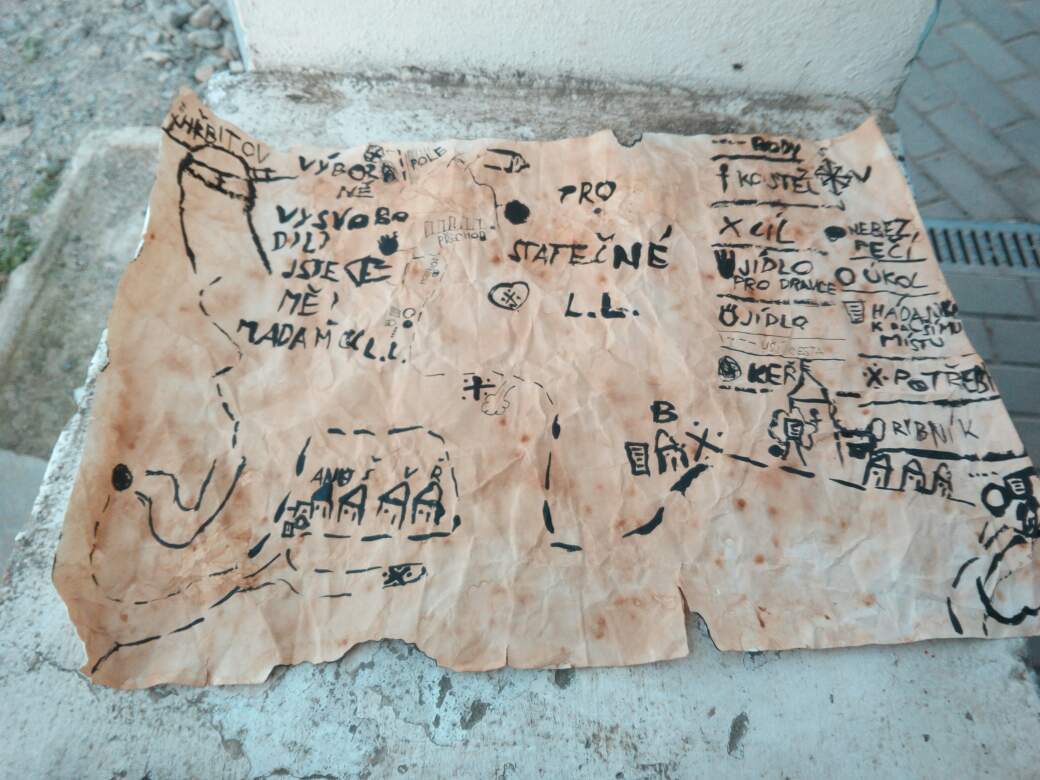 HŘBITOV
VÝBOR
NĚ
VYSVOBO
DILI
JSTE
MĚ!
MADAM
L.L.
POLE
PŘECHOD
PRO
STATEČNÉ
L.L.
B
BODY
KOSTEL
V
X CÍL
NEBEZ
PEČÍ
JÍDLO
PRO DRAVCE
ÚKOL
JÍDLO
K DALŠÍMU
MÍSTU
KEŘ
POTŘEB
RIBNÍK